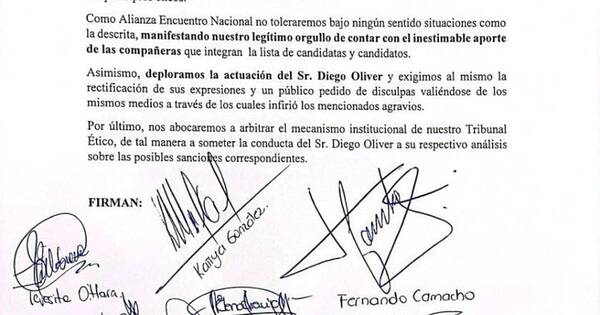 Como Alianza Encuentro Nacional no toleraremos bajo ningún sentido situaciones como
la descrita, manifestando nuestro legítimo orgullo de contar con el inestimable aporte
de las compañeras que integran la lista de candidatas y candidatos.
Asimismo, deploramos la actuación del Sr. Diego Oliver y exigimos al mismo la
rectificación de sus expresiones y un público pedido de disculpas valiéndose de los
mismos medios a través de los cuales infirió los mencionados agravios.
Por último, nos abocaremos a arbitrar el mecanismo institucional de nuestro Tribunal
Ético, de tal manera a someter la conducta del Sr. Diego Oliver a su respectivo análisis
sobre las posibles sanciones correspondientes.
FIRMAN:
Kattya González.
Teresita O'Hara
Fernando Camacho